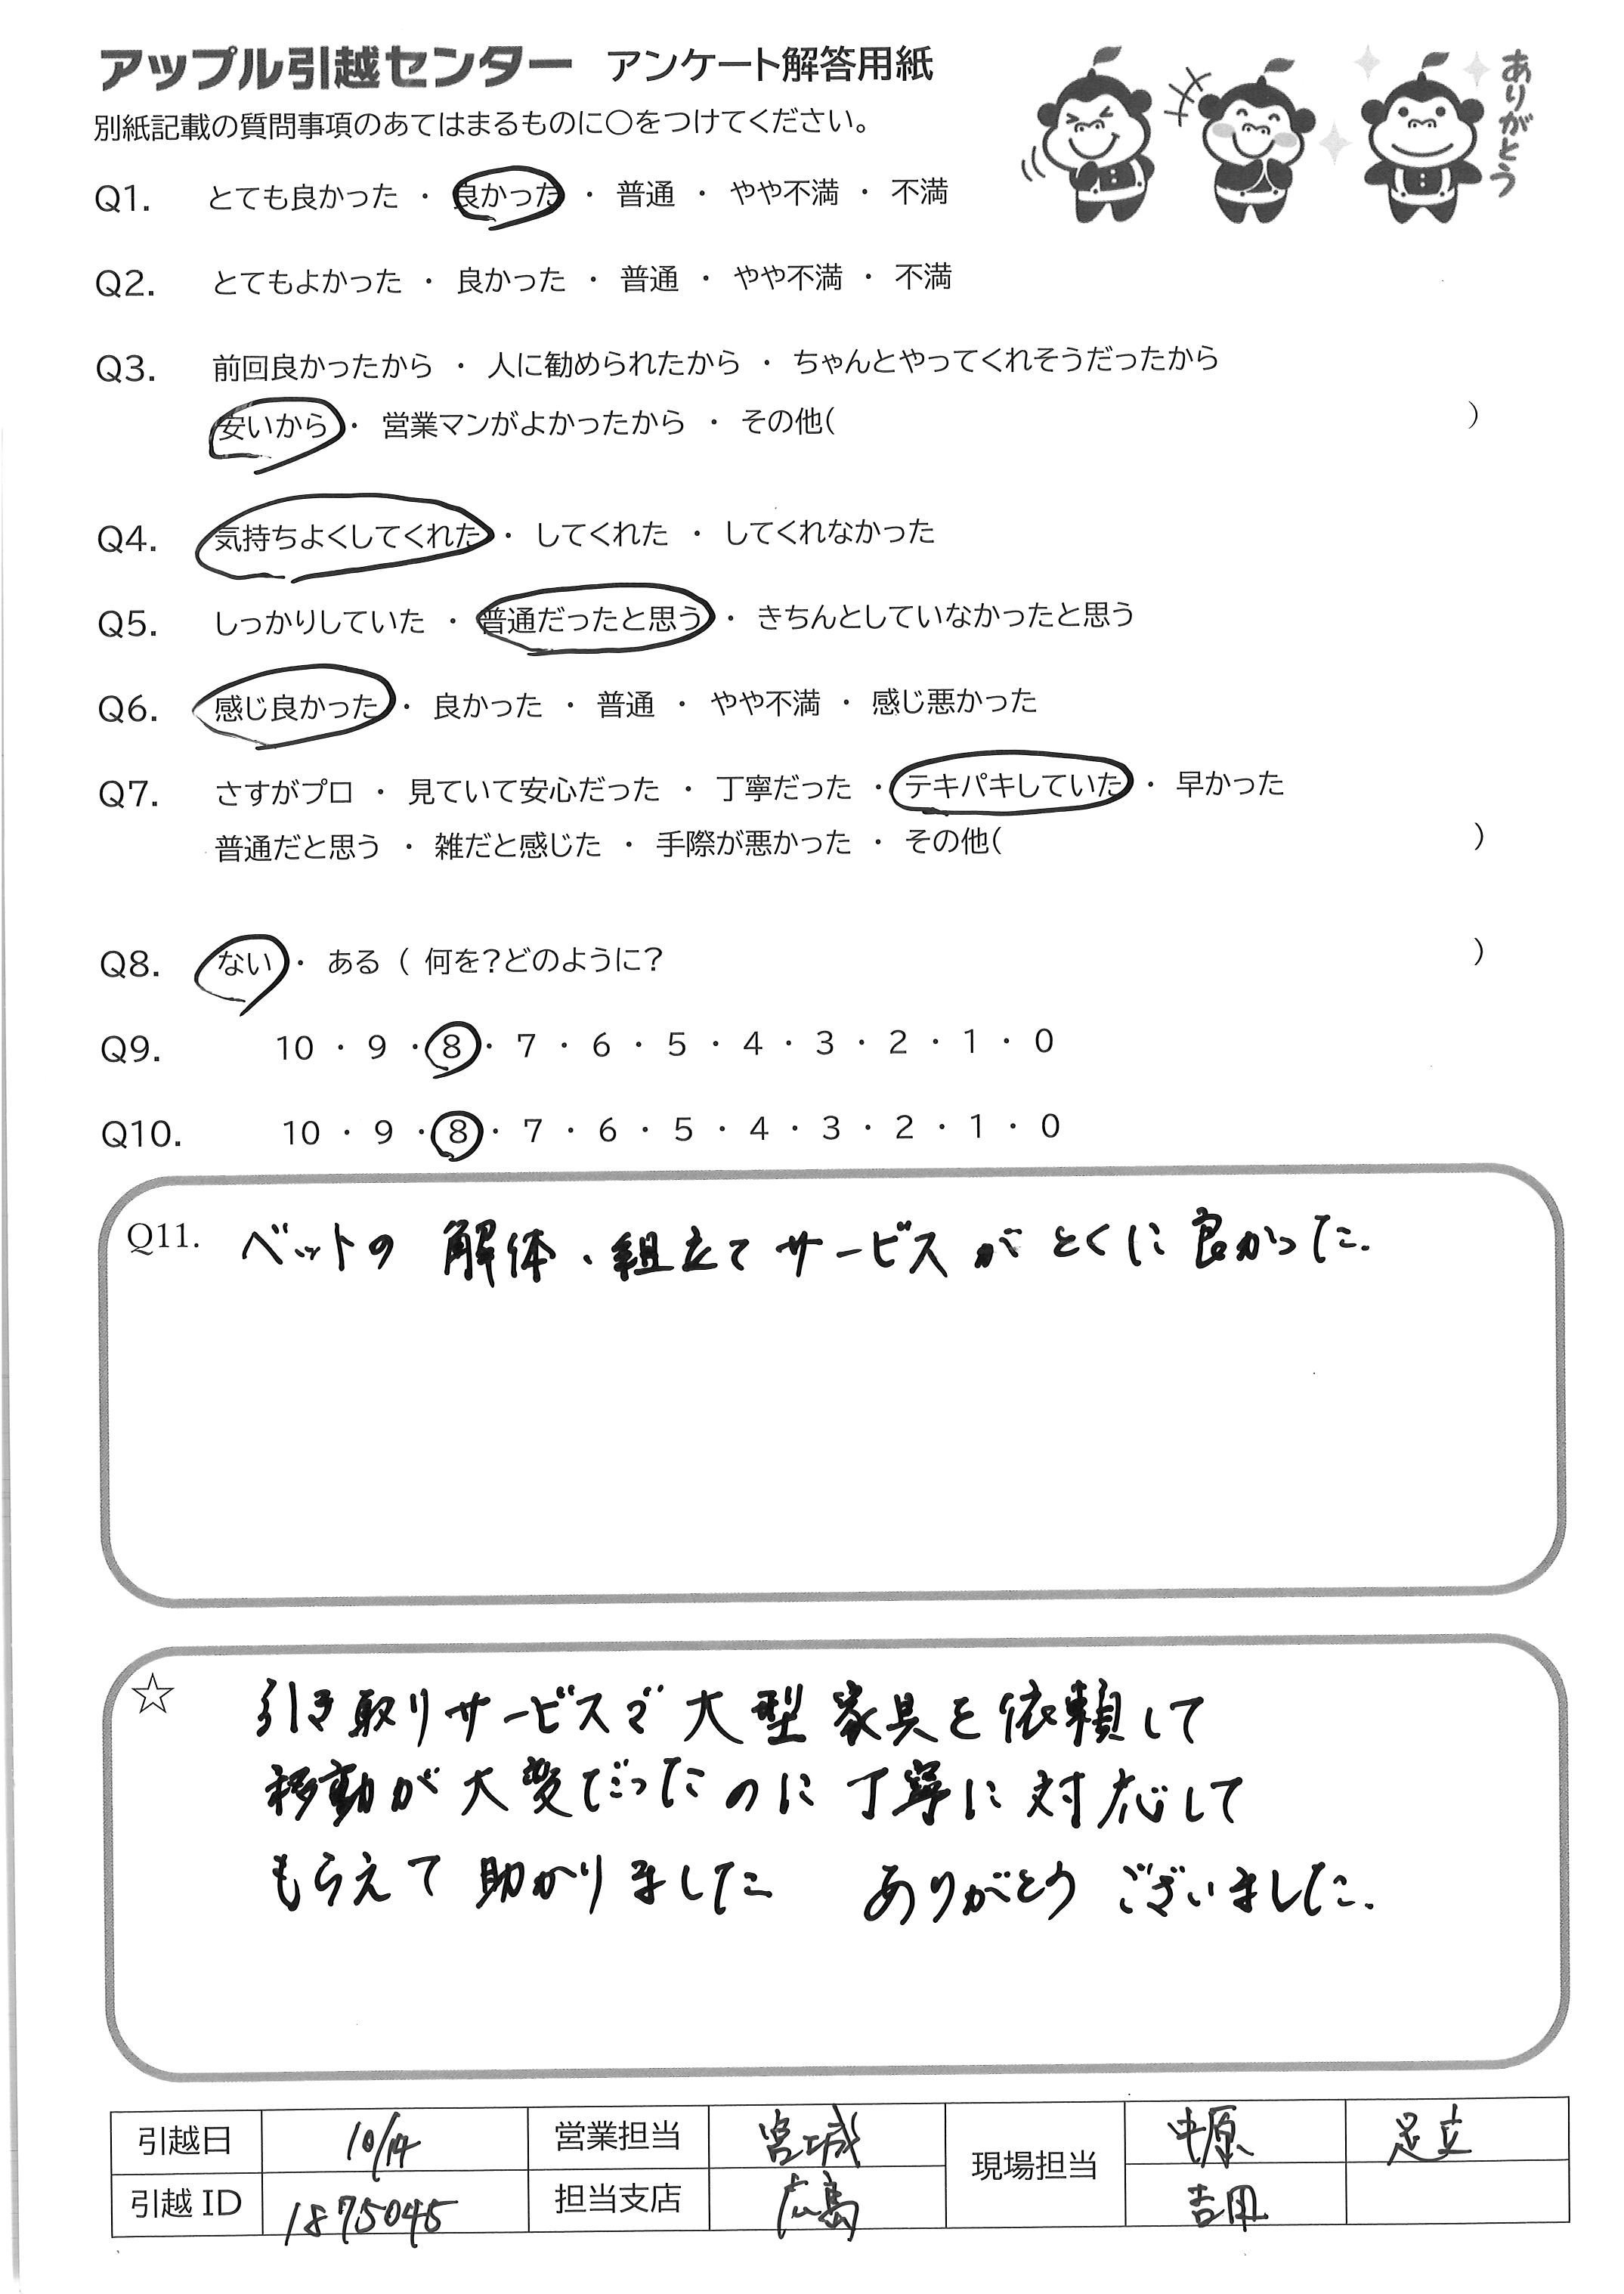 アップル引越センター アンケート解答用紙
ありがとう
別紙記載の質問事項のあてはまるものに○をつけてください。
Q1. とても良かった ・ 良かった ・ 普通 ・ やや不満 ・ 不満
Q2. とてもよかった ・ 良かった ・ 普通 ・ やや不満 ・ 不満
Q3. 前回良かったから ・ 人に勧められたから ・ ちゃんとやってくれそうだったから
安いから ・ 営業マンがよかったから ・ その他( )
Q4. 気持ちよくしてくれた ・ してくれた ・ してくれなかった
Q5. しっかりしていた ・ 普通だったと思う ・ きちんとしていなかったと思う
Q6. 感じ良かった ・ 良かった ・ 普通 ・ やや不満 ・ 感じ悪かった
Q7. さすがプロ ・ 見ていて安心だった ・ 丁寧だった ・ テキパキしていた ・ 早かった
普通だと思う ・ 雑だと感じた ・ 手際が悪かった ・ その他( )
Q8. ない ・ ある ( 何を?どのように? )
Q9. 10 ・ 9 ・ 8 ・ 7 ・ 6 ・ 5 ・ 4 ・ 3 ・ 2 ・ 1 ・ 0
Q10. 10 ・ 9 ・ 8 ・ 7 ・ 6 ・ 5 ・ 4 ・ 3 ・ 2 ・ 1 ・ 0
Q11. ベットの 解体、組立てサービスが とくに良かった.
☆ 引き取りサービスで大型家具を依頼して
移動が大変だったのに丁寧に対応して
もらえて助かりました ありがとうございました.
引越日 10/14 営業担当 宮城 現場担当 中原 足立
引越ID 1875045 担当支店 広島 吉田